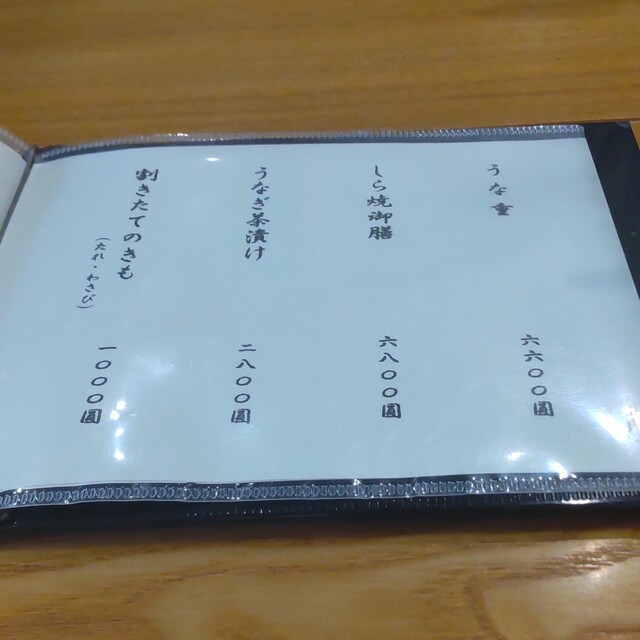 うな重
六六〇〇圓
しら焼御膳
六八〇〇圓
うなぎ茶漬け
二八〇〇圓
割きたてのきも
(たれ・わさび)
一〇〇〇圓